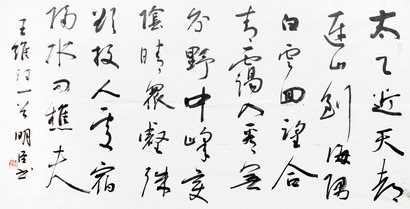 太乙近天都
连山到海隅
白云回望合
青霭入看无
分野中峰变
阴晴众壑殊
欲投人处宿
隔水问樵夫
王维诗一首 明臣书